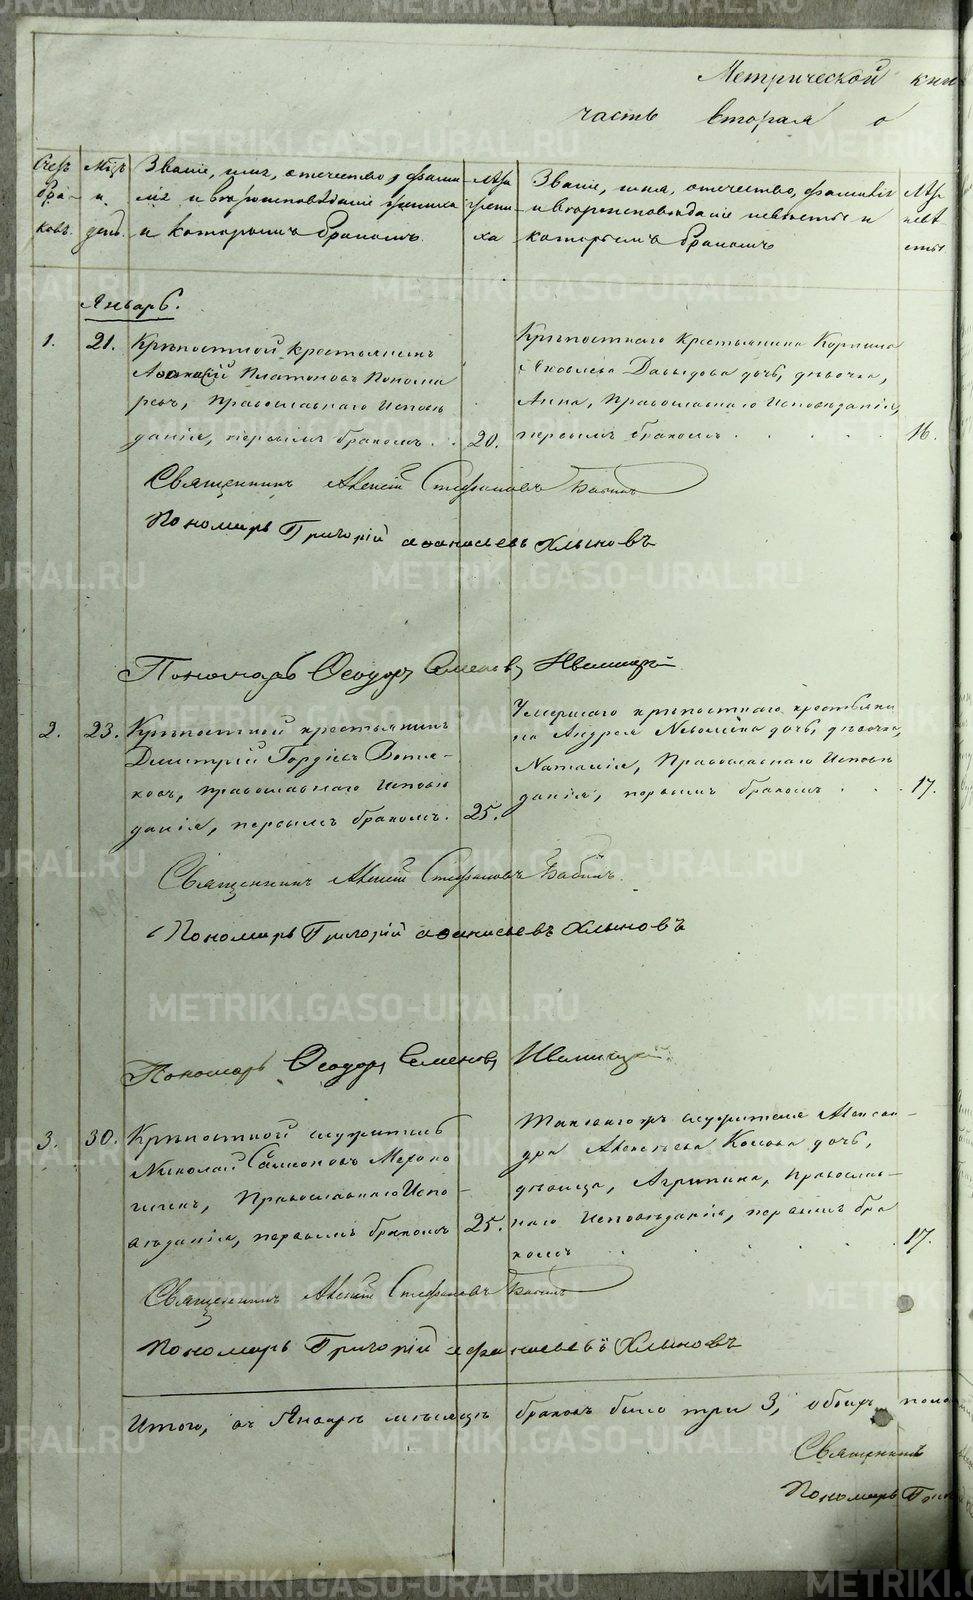 Метрической кни
часть вторая о
Счетъ браковъ.
Мѣцъ и день.
Званіе, имя, отечество, фами
лія и вѣроисповѣданіе жениха
и которымъ бракомъ.
Лѣта жениха
Званіе, имя, отечество, фамилія
и вѣроисповѣданіе невѣсты и
которымъ бракомъ
Лѣта невѣсты
Январь.
1. 21. Крѣпостной крестьянинъ
Аѳанасій Платоновъ Понома
ревъ, Православнаго Исповѣ
данія, первымъ бракомъ . . 20.
Крѣпостнаго крестьянина Корнила
Яковлева Давыдова дочь, дѣвочка,
Анна, Православнаго Исповѣданія,
первымъ бракомъ . . . . . 16.
Священникъ Алексій Стефановъ Бабинъ
Пономарь Григорій Аѳанасьевъ Хлыновъ
Пономарь Ѳеодоръ Семеновъ
2. 23. Крѣпостной крестьянинъ
Дмитрій Гордѣевъ Вотя-
ковъ, православнаго Исповѣ
данія, первымъ бракомъ. 25.
Умершаго крѣпостнаго крестьяни
на Андрея дочь, дѣвочка,
Наталія, Православнаго Исповѣ
данія, первымъ бракомъ . . . 17.
Священникъ Алексій Стефановъ Бабинъ.
Пономарь Григорій Аѳанасьевъ Хлыновъ
Пономарь Ѳеодоръ Семеновъ
3. 30. Крѣпостной служитель
Николай Самсоновъ
Православнаго Испо-
вѣданія, первымъ бракомъ 25.
Таковаго жъ служителя Алексан-
дра Алексѣева дочь,
дѣвица, Агрипина, Православ-
наго Исповѣданія, первымъ бра
комъ . . . . . 17.
Священникъ Алексій Стефановъ Бабинъ
Пономарь Григорій Афанасьевъ Хлыновъ
Итого, въ Январѣ мѣсяцѣ браковъ было три 3, обоихъ пола
Священникъ
Пономарь Григ
METRIKI.GASO-URAL.RU